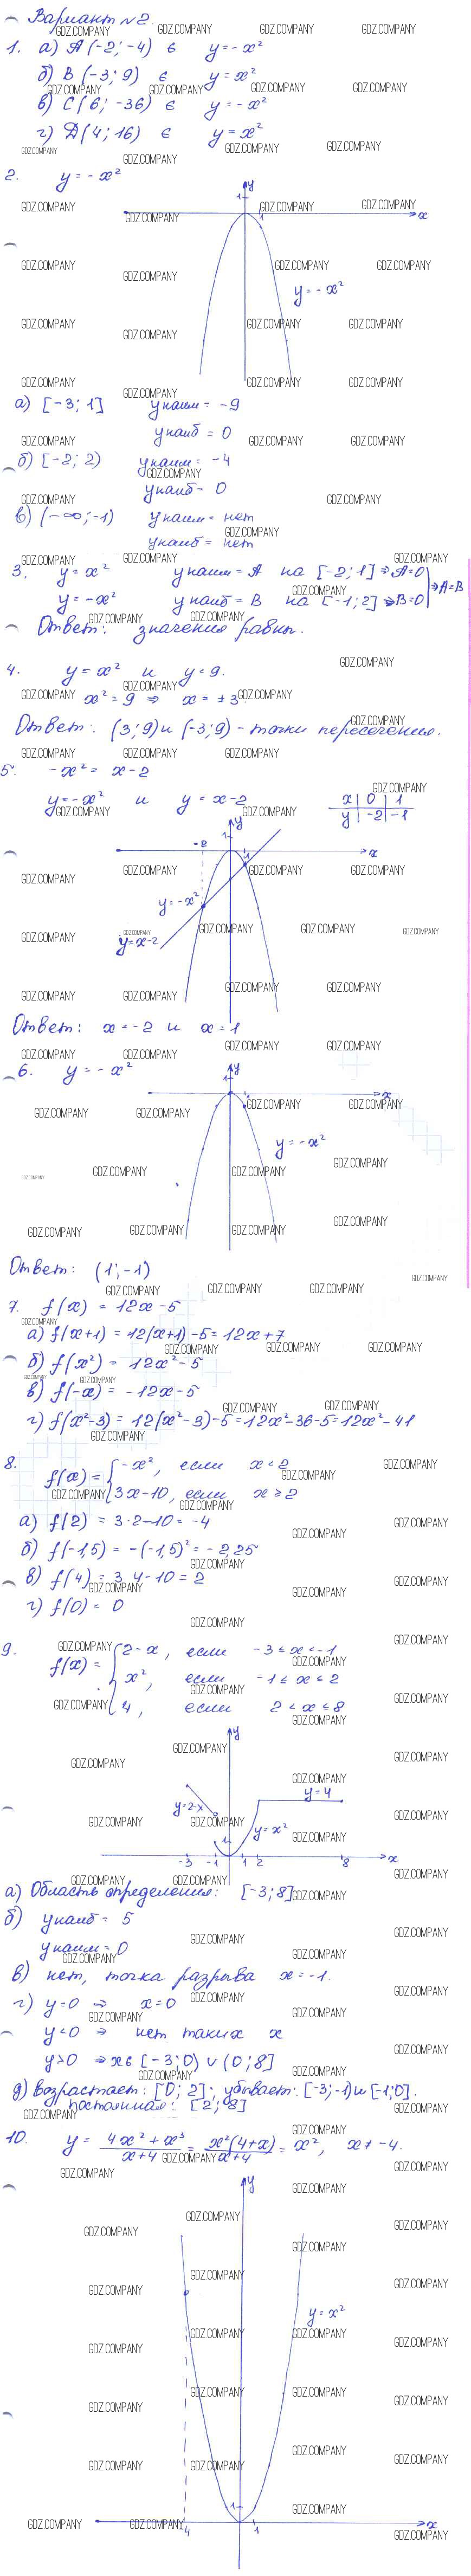 Вариант №2.
1. а) A (-2; -4) ∈ y = -x²
б) B (-3; 9) ∈ y = x²
в) C (6; -36) ∈ y = -x²
г) D (4; 16) ∈ y = x²
2. y = -x²
y
1
1
x
y = -x²
а) [-3; 1] yнаим = -9
yнаиб = 0
б) [-2; 2) yнаим = -4
yнаиб = 0
в) (-∞; -1) yнаим = нет
yнаиб = нет
3. y = x² yнаим = A на [-2; 1] ⇒ A=0
y = -x² yнаиб = B на [-1; 2] ⇒ B=0 ⇒ A=B
Ответ: значения равны.
4. y = x² и y = 9.
x² = 9 ⇒ x = ±3
Ответ: (3; 9) и (-3; 9) - точки пересечения.
5. -x² = x-2
y = -x² и y = x-2
x 0 1
y -2 -1
y
1
-2
1
x
y = -x²
y = x-2
Ответ: x = -2 и x = 1
6. y = -x²
y
1
1
x
y = -x²
Ответ: (1; -1)
7. f(x) = 12x-5
а) f(x+1) = 12(x+1)-5 = 12x+7
б) f(x²) = 12x²-5
в) f(-x) = -12x-5
г) f(x²-3) = 12(x²-3)-5 = 12x²-36-5 = 12x²-41
8. f(x) = { -x², если x < 2
3x-10, если x ≥ 2
а) f(2) = 3·2-10 = -4
б) f(-1,5) = -(-1,5)² = -2,25
в) f(4) = 3·4-10 = 2
г) f(0) = 0
9. f(x) = { 2-x, если -3 ≤ x < -1
x², если -1 ≤ x ≤ 2
4, если 2 < x ≤ 8
y
y = 2-x
y = 4
y = x²
1
-3 -1 1 2 8 x
а) Область определения: [-3; 8]
б) yнаиб = 5
yнаим = 0
в) нет, точка разрыва x = -1.
г) y=0 ⇒ x=0
y<0 ⇒ нет таких x
y>0 ⇒ x∈ [-3; 0) ∪ (0; 8]
д) возрастает: [0; 2]; убывает: [-3; -1) и [-1; 0].
постоянная: [2; 8]
10. y = (4x² + x³)/(x+4) = x²(4+x)/(x+4) = x², x ≠ -4.
y
y = x²
1
-4
1
x
GDZ.COMPANY